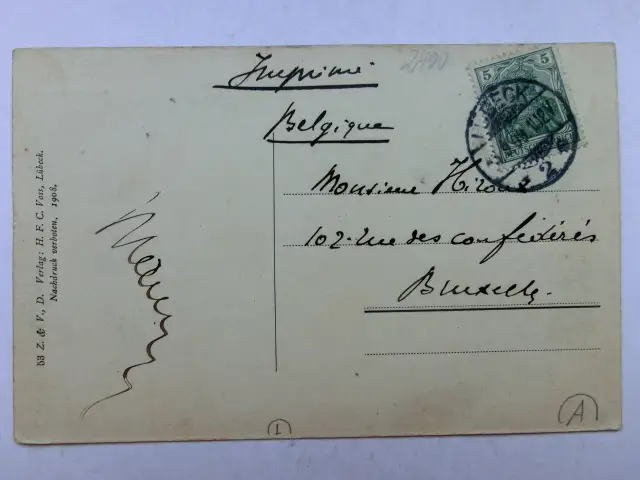 Imprimé
2,400
5
LÜBECK
2
Belgique
Monsieur Hiroux
102 - rue des confédérés
Bruxelles.
53 Z. & V., D. Verlag: H. F. C. Voss, Lübeck.
Nachdruck verboten. 1908.
1
A